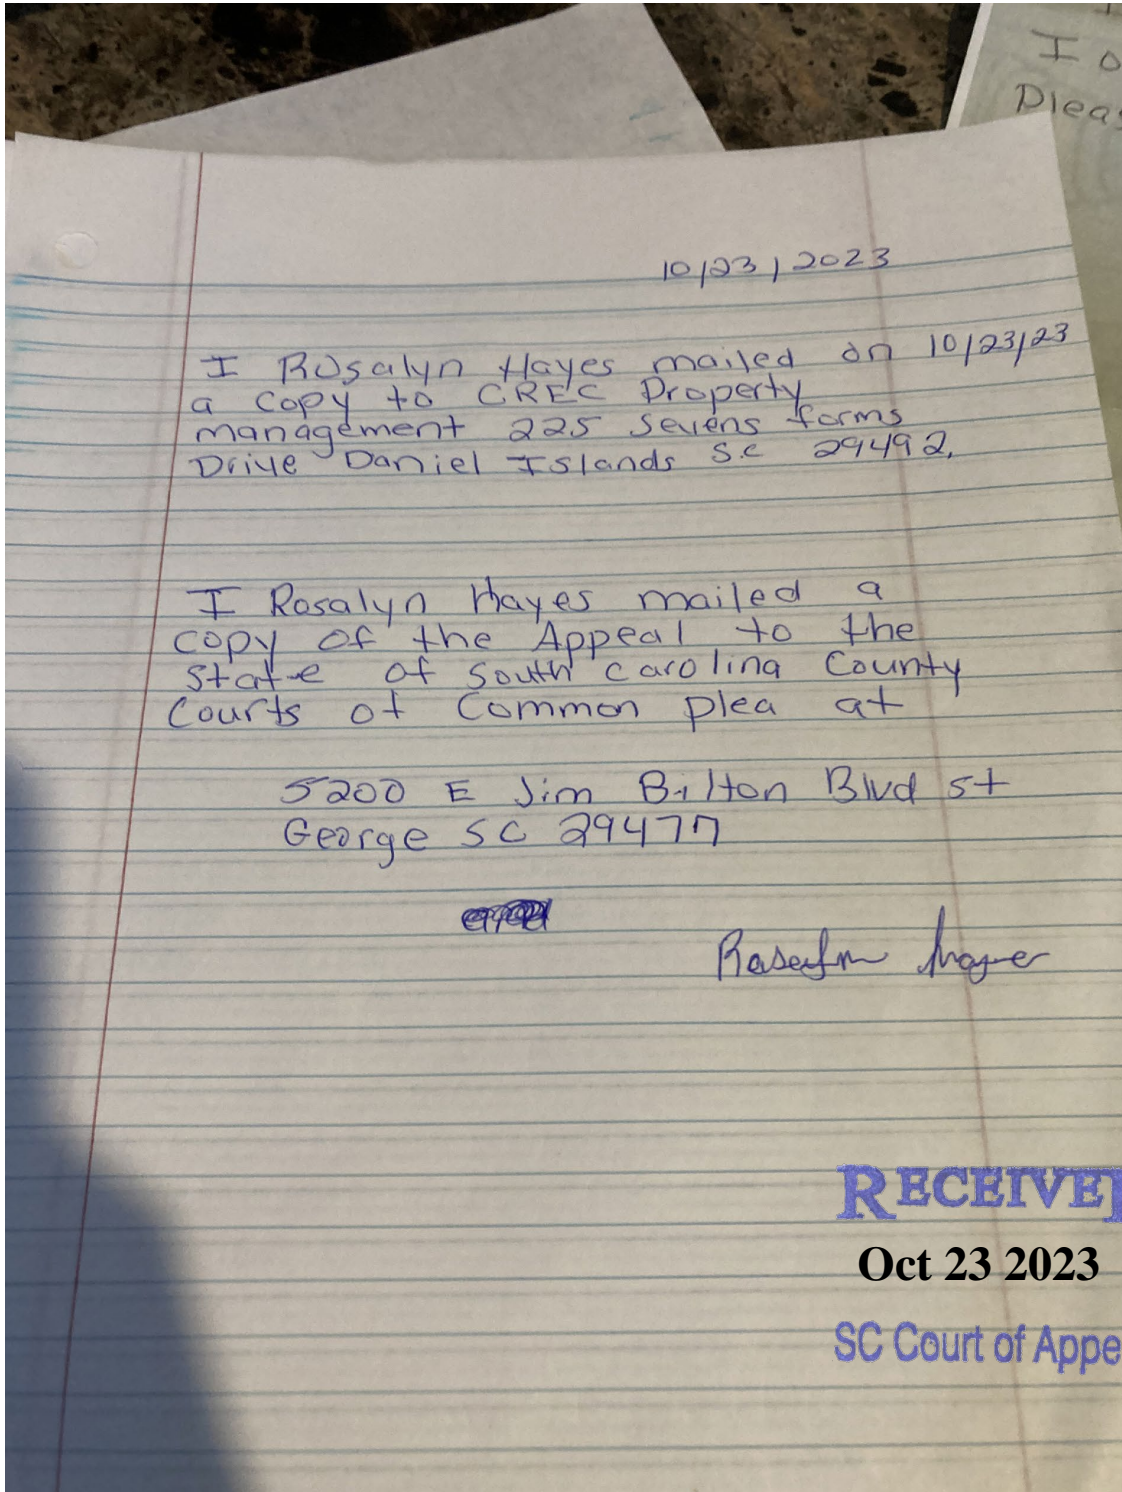 I o
Pleas
10/23/2023
I Rosalyn Hayes mailed on 10/23/23
a copy to CREC Property
management 225 Sevens farms
Drive Daniel Islands S.C 29492.
I Rosalyn Hayes mailed a
copy of the Appeal to the
State of South Carolina County
Courts of Common plea at
5200 E Jim Bilton Blvd St
George SC 29477
RECEIVED
Oct 23 2023
SC Court of Appe